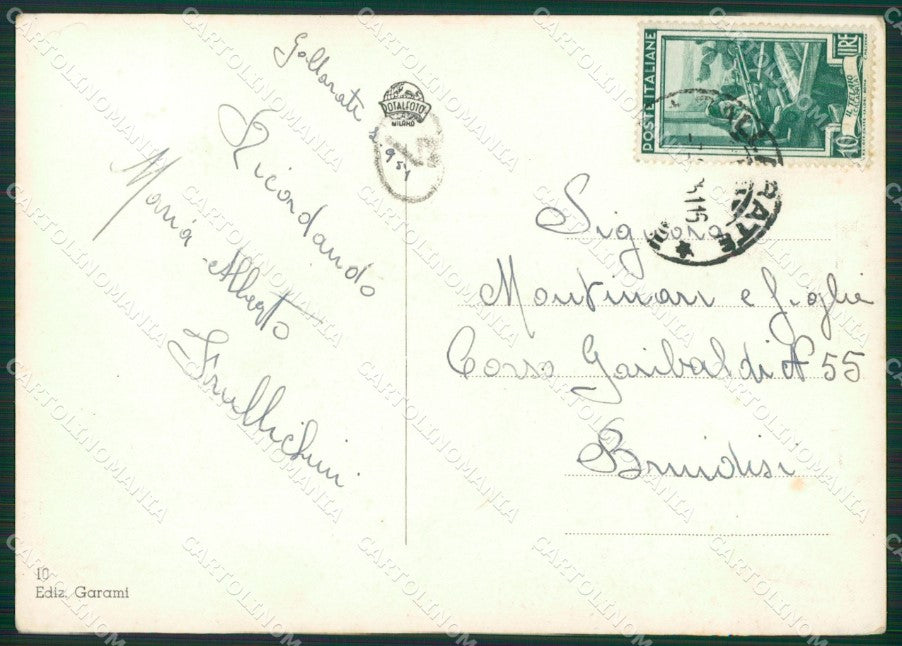 Gallarate 2.9.51
Ricordando
Maria - Alberto
Frullichini
ROTALFOTO
MILANO
POSTE ITALIANE
LIRE
10
Signora
Montinari e figlie
Corso Garibaldi N 55
Brindisi
10
Ediz. Garami
CARTOLINOMANIA